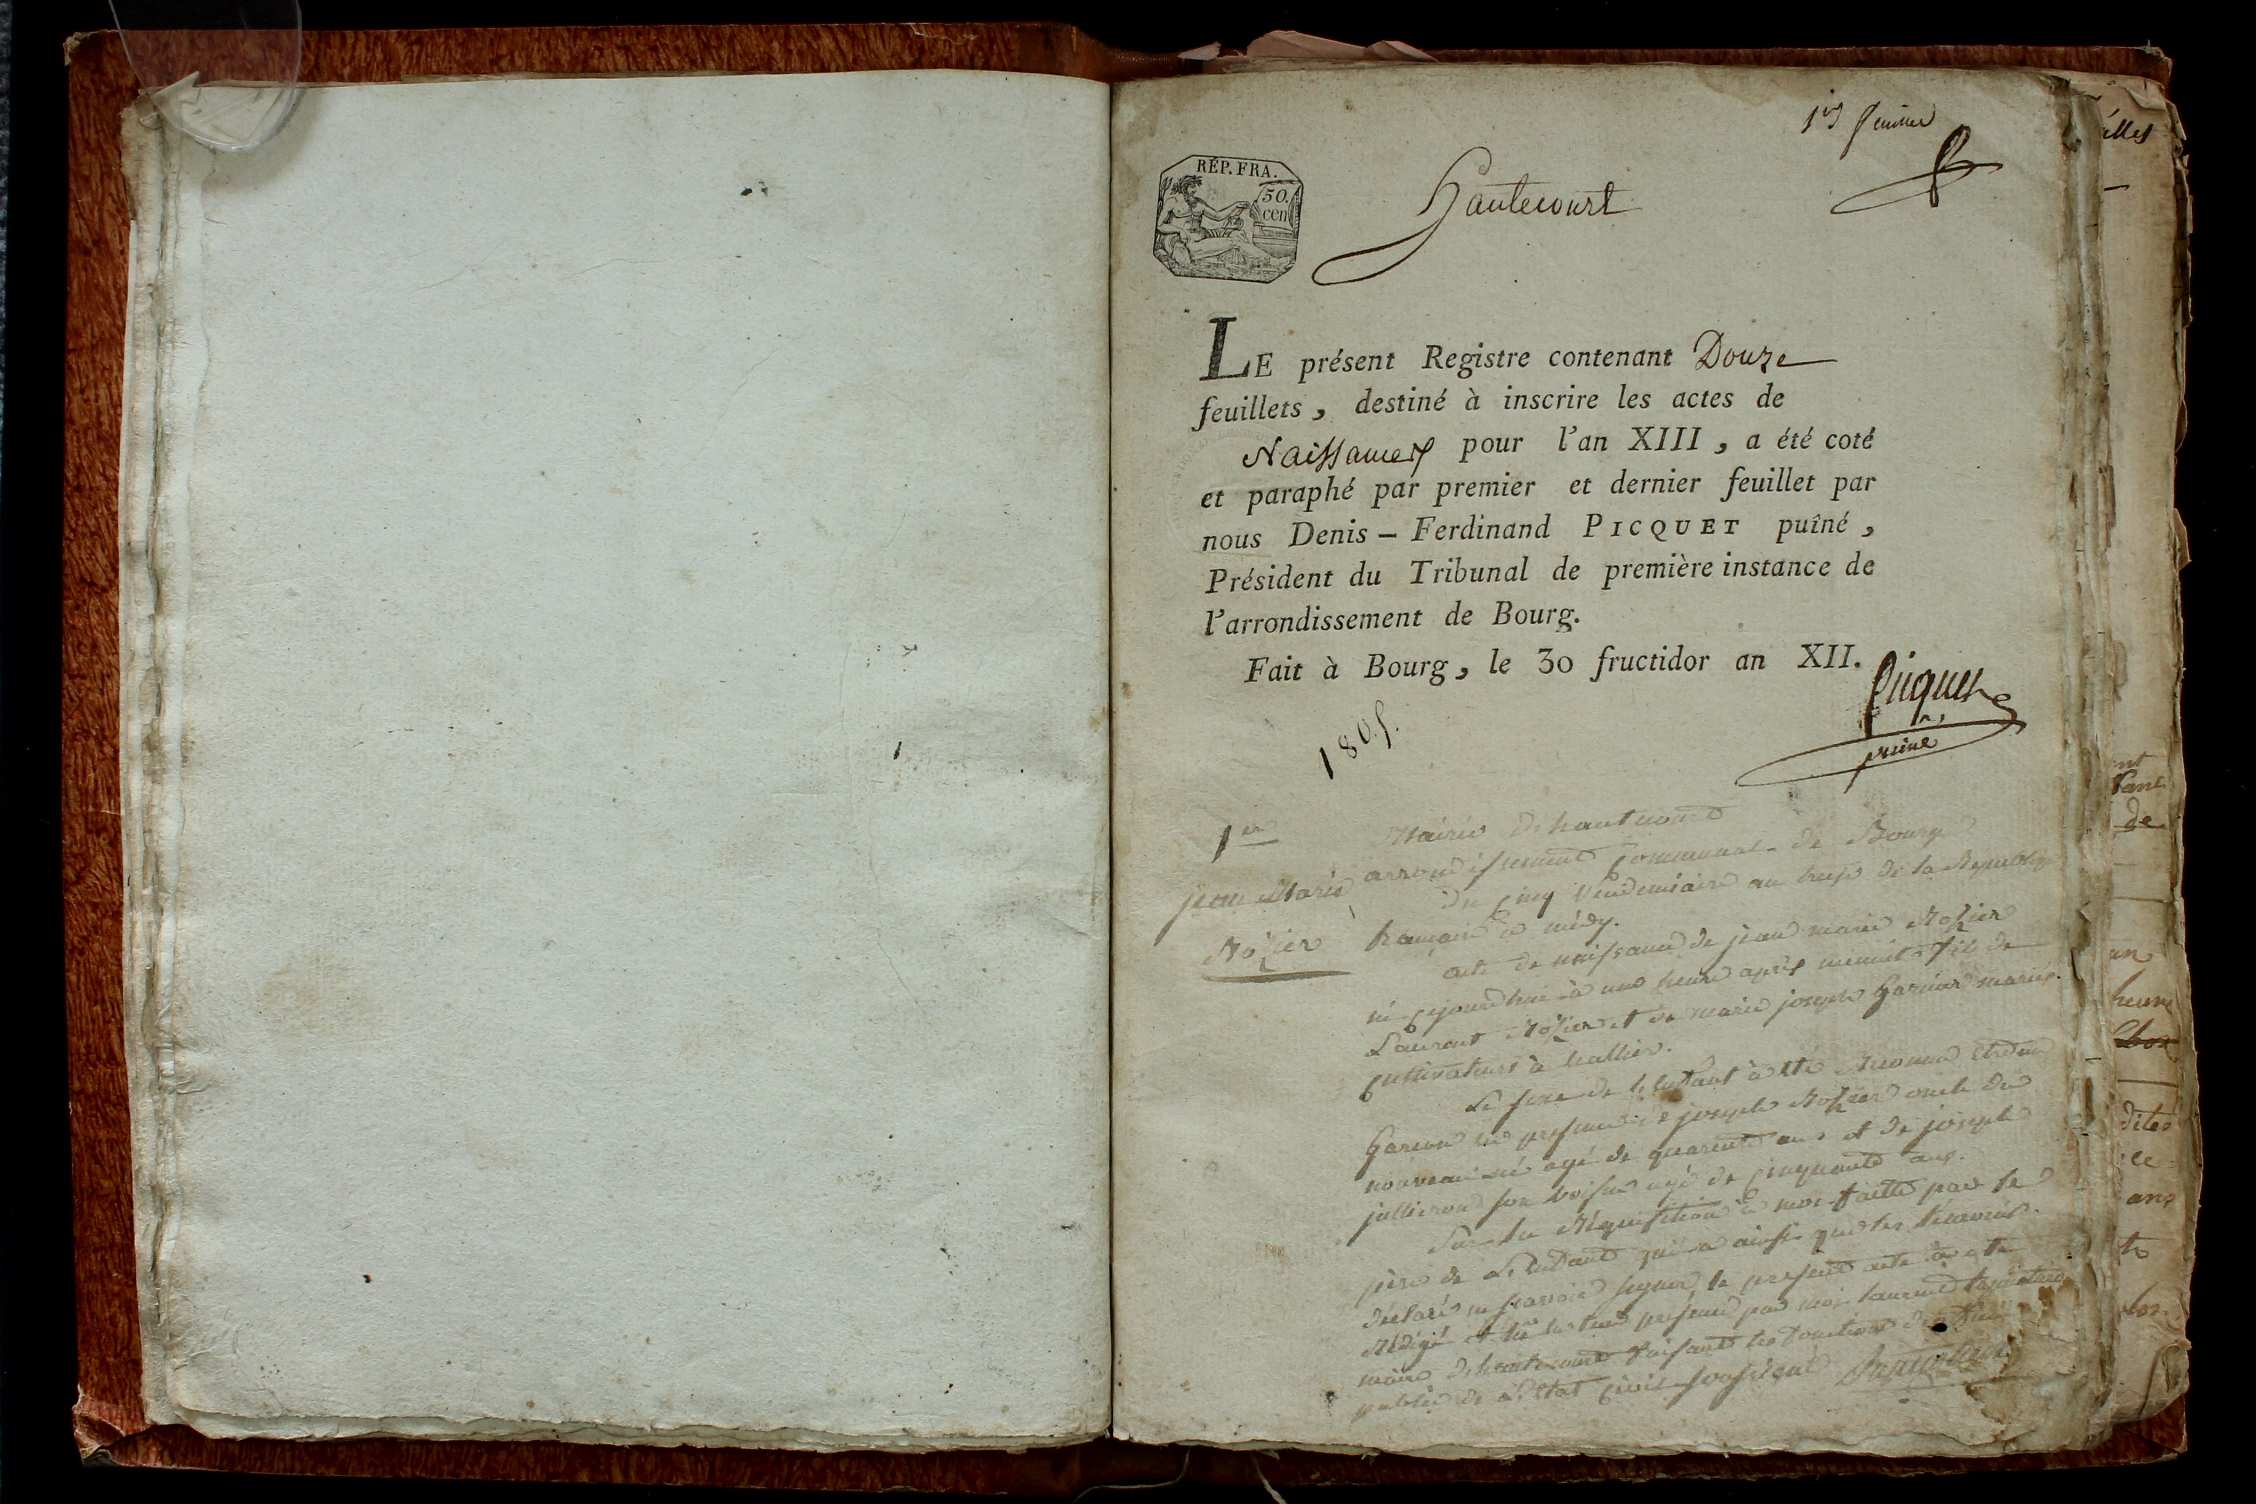 1er feuillet
RÉP. FRA.
50.
cen
Hautecourt
LE présent Registre contenant Douze
feuillets, destiné à inscrire les actes de
Naissances pour l'an XIII, a été coté
et paraphé par premier et dernier feuillet par
nous Denis – Ferdinand PICQUET puîné,
Président du Tribunal de première instance de
l'arrondissement de Bourg.
Fait à Bourg, le 30 fructidor an XII.
Picquet
puiné
1805.
1er
Mairie de hautecourt
arrondissement Communal de Bourg
jean Marie
Du Cinq Vendemiaire an treize de la Republique
Rozier
française à midy.
acte de naissance de jean marie Rozier
né cejourdhui à une heure après minuit fils de
Laurent Rozier et de marie joseph Garnier mariés
cultivateurs à hallier.
Le sexe de l'enfant à été reconnu etre un
Garcon en presence de joseph Rozier oncle du
nouveau né agé de quarente ans et de joseph
jullieron son voisin agé de cinquante ans.
Sur la Réquisition à moi faitte par le
père de L'enfant qui a ainsi que les temoins
déclaré ne scavoir signer, le present acte à eté
Rédigé et lu en leur presence par moi laurent
maire de hautecourt faisant les fonctions d'officier
public de l'Etat civil soussigné
élles
ent
de
un
heure
dites
ce
ans